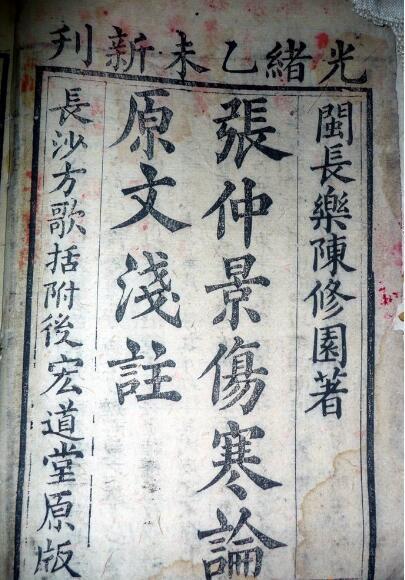 光緒乙未新刊
閩長樂陳修園著
張仲景傷寒論
原文淺註
長沙方歌括附後宏道堂原版